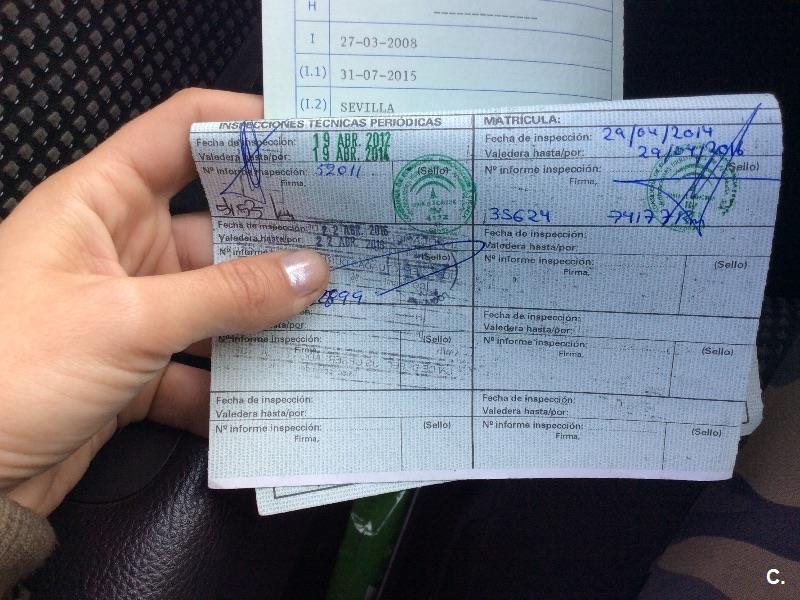 H -------------
I 27-03-2008
(I.1) 31-07-2015
(I.2) SEVILLA
INSPECCIONES TÉCNICAS PERIÓDICAS
Fecha de inspección: 19 ABR. 2012
Valedera hasta/por: 19 ABR. 2014
Nº informe inspección: 52011 (Sello)
Firma,
MATRÍCULA:
Fecha de inspección: 29/04/2014
Valedera hasta/por: 29/04/2016
Nº informe inspección: (Sello)
Firma,
35624
Fecha de inspección: 22 ABR. 2016
Valedera hasta/por: 22 ABR. 2018
Nº informe (Sello)
Fecha de inspección:
Valedera hasta/por:
Nº informe inspección: (Sello)
Firma,
hasta/por:
Nº informe inspección: (Sello)
Firma,
Fecha de inspección:
Valedera hasta/por:
Nº informe inspección: (Sello)
Firma,
Fecha de inspección:
Valedera hasta/por:
Nº informe inspección: (Sello)
Firma,
Fecha de inspección:
Valedera hasta/por:
Nº informe inspección: (Sello)
Firma,
C.